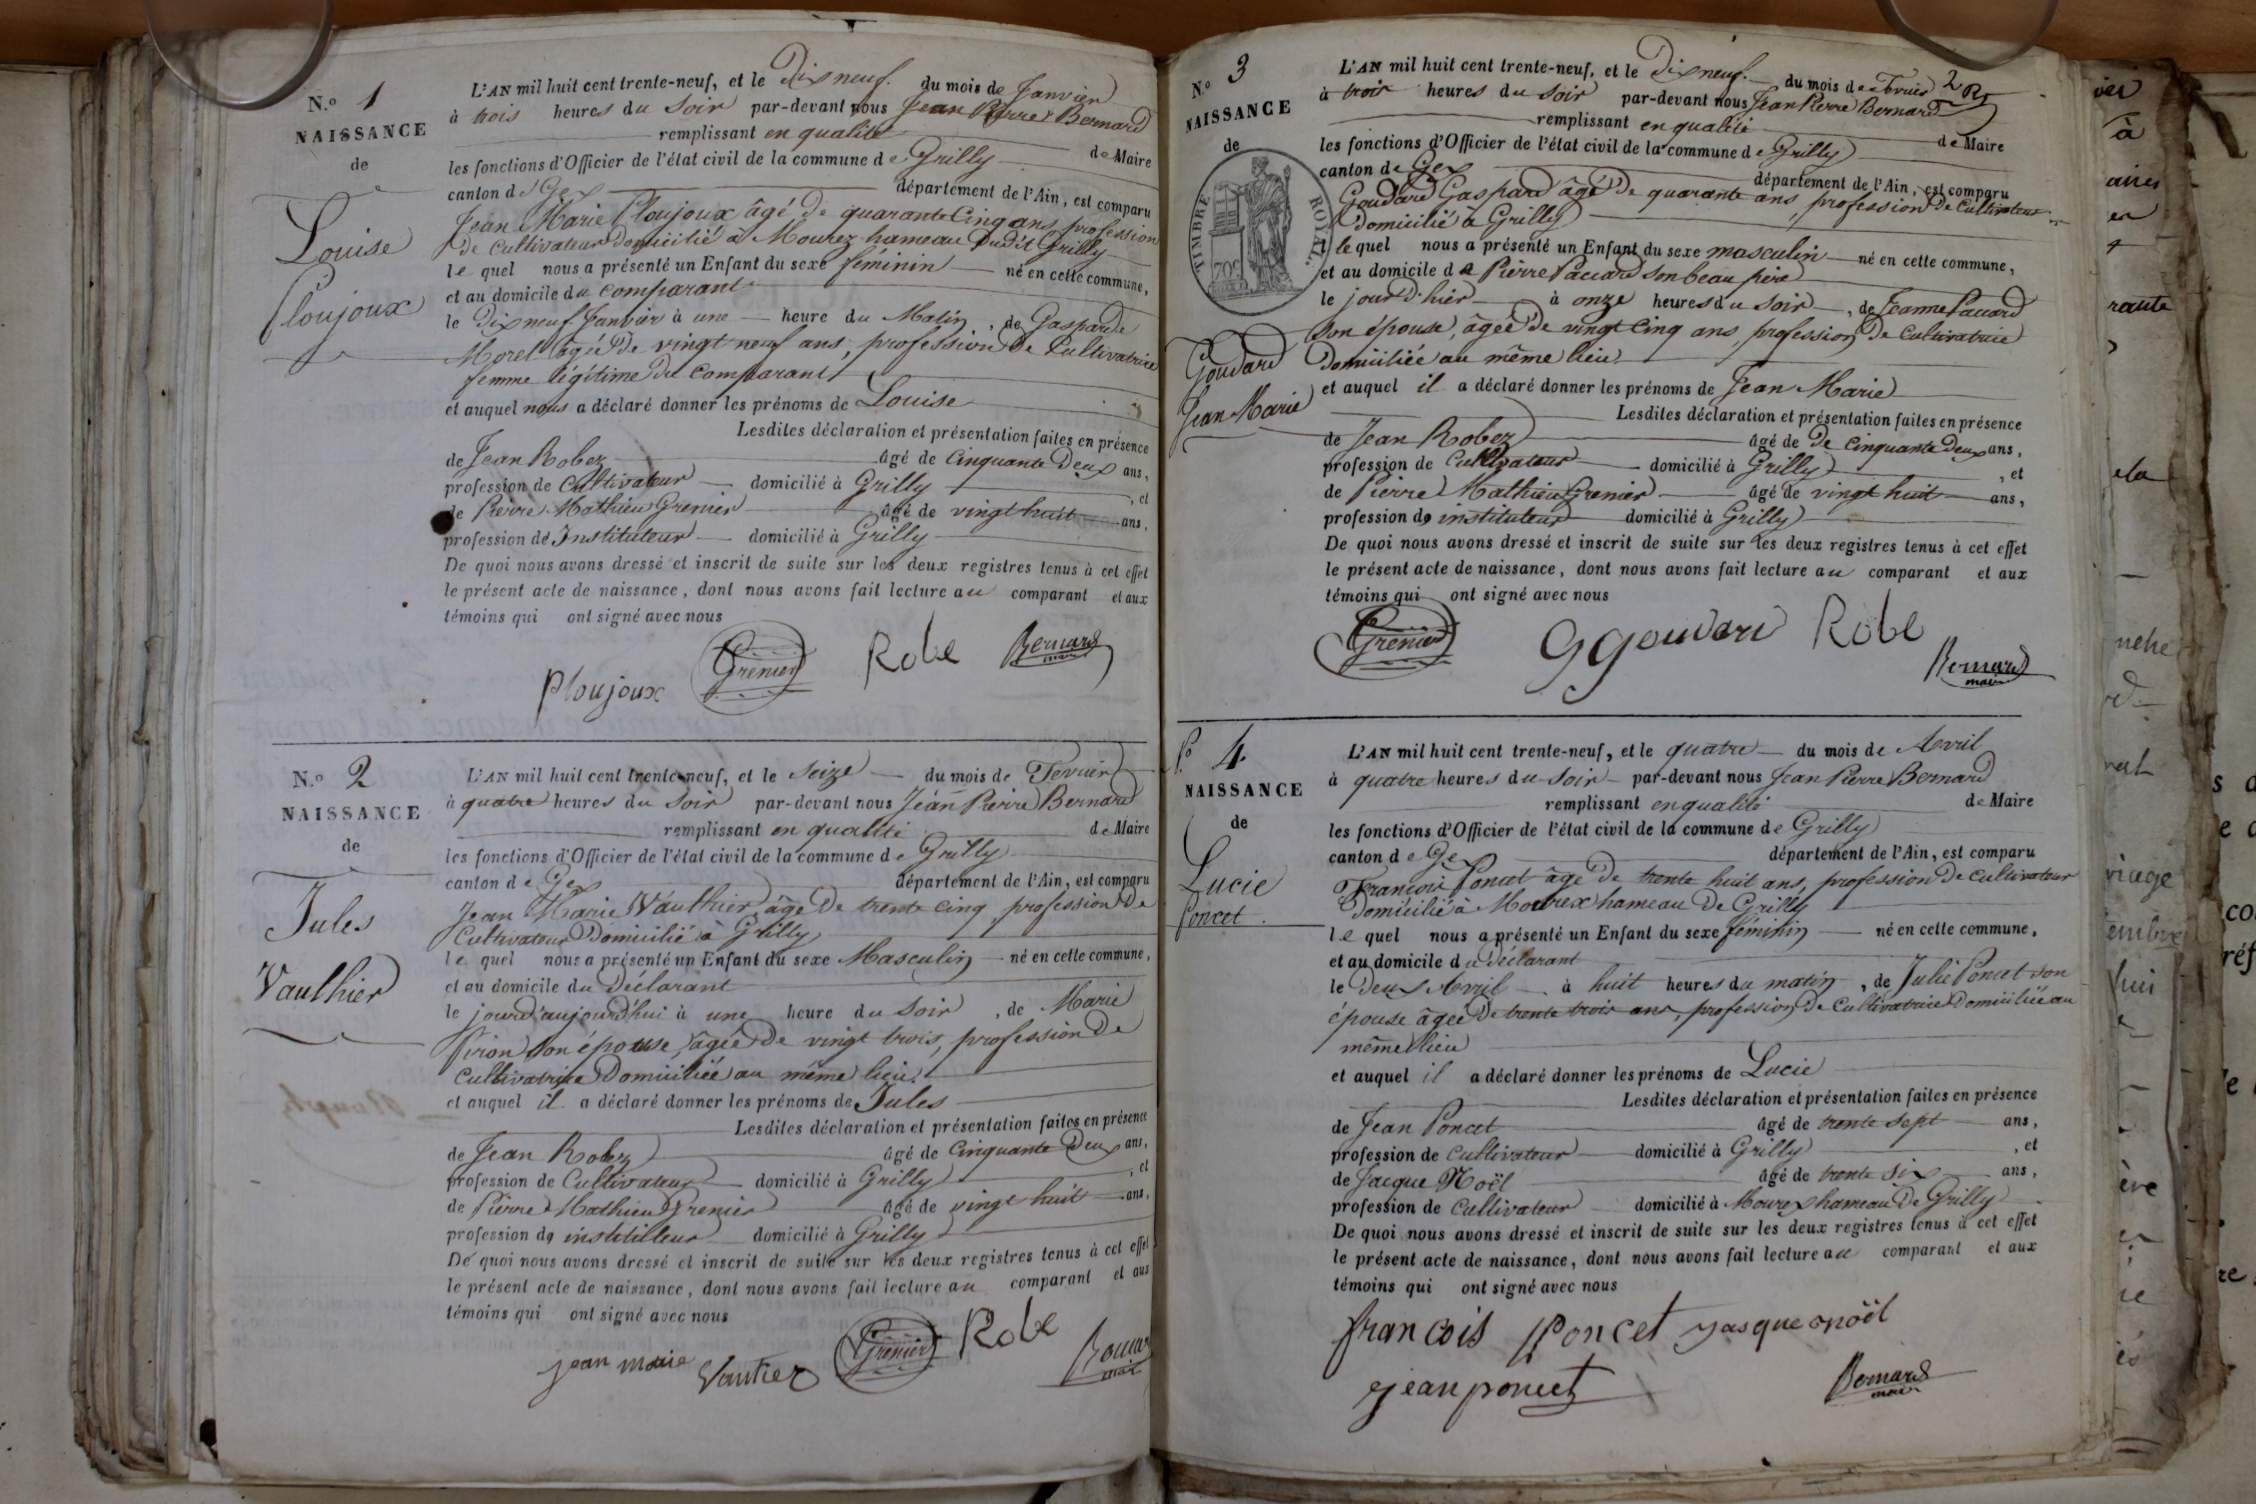 N.o 1
NAISSANCE
de
Louise
Ploujoux
L'AN mil huit cent trente-neuf, et le Dix neuf du mois de Janvier
à trois heures du Soir par-devant nous Jean Pierre Bernard
remplissant en qualité de Maire
les fonctions d'Officier de l'état civil de la commune de Grilly
canton de Gex département de l'Ain, est comparu
Jean Marie Ploujoux âgé de quarante Cinq ans, profession
de Cultivateur Domicilié à Mourex hameau Dudit Grilly
lequel nous a présenté un Enfant du sexe féminin né en cette commune,
et au domicile du Comparant
le Dix neuf Janvier à une heure du Matin, de Gasparde
Morel âgée De vingt neuf ans, profession De Cultivatrice
femme légitime Du Comparant
et auquel nous a déclaré donner les prénoms de Louise
Lesdites déclaration et présentation faites en présence
de Jean Robez âgé de Cinquante Deux ans,
profession de Cultivateur domicilié à Grilly, et
de Pierre Mathieu Grenier âgé de vingt huit ans,
profession de Instituteur domicilié à Grilly
De quoi nous avons dressé et inscrit de suite sur les deux registres tenus à cet effet
le présent acte de naissance, dont nous avons fait lecture au comparant et aux
témoins qui ont signé avec nous
Ploujoux Grenier Robe Bernard
maire
N.o 2
NAISSANCE
de
Jules
Vaulthier
L'AN mil huit cent trente-neuf, et le Seize du mois de Fevrier
à quatre heures du Soir par-devant nous Jean Pierre Bernard
remplissant en qualité de Maire
les fonctions d'Officier de l'état civil de la commune de Grilly
canton de Gex département de l'Ain, est comparu
Jean Marie Vaulthier, âgé De trente Cinq, profession De
Cultivateur Domicilié à Grilly
lequel nous a présenté un Enfant du sexe Masculin né en cette commune,
et au domicile du Déclarant
le jourd'aujourd'hui à une heure du Soir, de Marie
Piron son épouse, âgée De vingt trois, profession De
Cultivatrice Domiciliée au même lieu
et auquel il a déclaré donner les prénoms de Jules
Lesdites déclaration et présentation faites en présence
de Jean Robez âgé de Cinquante Deux ans,
profession de Cultivateur domicilié à Grilly, et
de Pierre Mathieu Grenier âgé de vingt huit ans,
profession de instituteur domicilié à Grilly
De quoi nous avons dressé et inscrit de suite sur les deux registres tenus à cet effet
le présent acte de naissance, dont nous avons fait lecture au comparant et aux
témoins qui ont signé avec nous
jean marie Vautier Grenier Robe Bernar
maire
N.o 3
NAISSANCE
de
TIMBRE ROYAL.
70c
Goudard
Jean Marie
L'AN mil huit cent trente-neuf, et le Dix neuf du mois de Fevrier
à trois heures du Soir par-devant nous Jean Pierre Bernard
remplissant en qualité de Maire
les fonctions d'Officier de l'état civil de la commune de Grilly
canton de Gex département de l'Ain, est comparu
Goudard Gaspard âgé De quarante ans, profession De Cultivateur
Domicilié à Grilly
lequel nous a présenté un Enfant du sexe masculin né en cette commune,
et au domicile de Pierre Paccard son beau père
le jour D'hier à onze heures du Soir, de Jeanne Paccard
Son épouse, âgée De vingt Cinq ans, profession De Cultivatrice
Domiciliée au même lieu
et auquel il a déclaré donner les prénoms de Jean Marie
Lesdites déclaration et présentation faites en présence
de Jean Robez âgé de De Cinquante Deux ans,
profession de Cultivateur domicilié à Grilly, et
de Pierre Mathieu Grenier âgé de vingt huit ans,
profession de instituteur domicilié à Grilly
De quoi nous avons dressé et inscrit de suite sur les deux registres tenus à cet effet
le présent acte de naissance, dont nous avons fait lecture au comparant et aux
témoins qui ont signé avec nous
Grenier Robe Bernard
maire
N.o 4
NAISSANCE
de
Lucie
Poncet
L'AN mil huit cent trente-neuf, et le quatre du mois de Avril
à quatre heures du soir par-devant nous Jean Pierre Bernard
remplissant en qualité de Maire
les fonctions d'Officier de l'état civil de la commune de Grilly
canton de Gex département de l'Ain, est comparu
François Poncet âgé De trente huit ans, profession De cultivateur
Domicilié à Mourex hameau De Grilly
lequel nous a présenté un Enfant du sexe féminin né en cette commune,
et au domicile du Déclarant
le Deux Avril à huit heures du matin, de Julie Poncet son
épouse âgée De trente trois ans, profession De Cultivatrice Domiciliée au
même lieu
et auquel il a déclaré donner les prénoms de Lucie
Lesdites déclaration et présentation faites en présence
de Jean Poncet âgé de trente sept ans,
profession de Cultivateur domicilié à Grilly, et
de Jacque Noël âgé de trente six ans,
profession de Cultivateur domicilié à Mourex hameau De Grilly
De quoi nous avons dressé et inscrit de suite sur les deux registres tenus à cet effet
le présent acte de naissance, dont nous avons fait lecture au comparant et aux
témoins qui ont signé avec nous
francois poncet jasque noël
jean poncet Bernard
maire